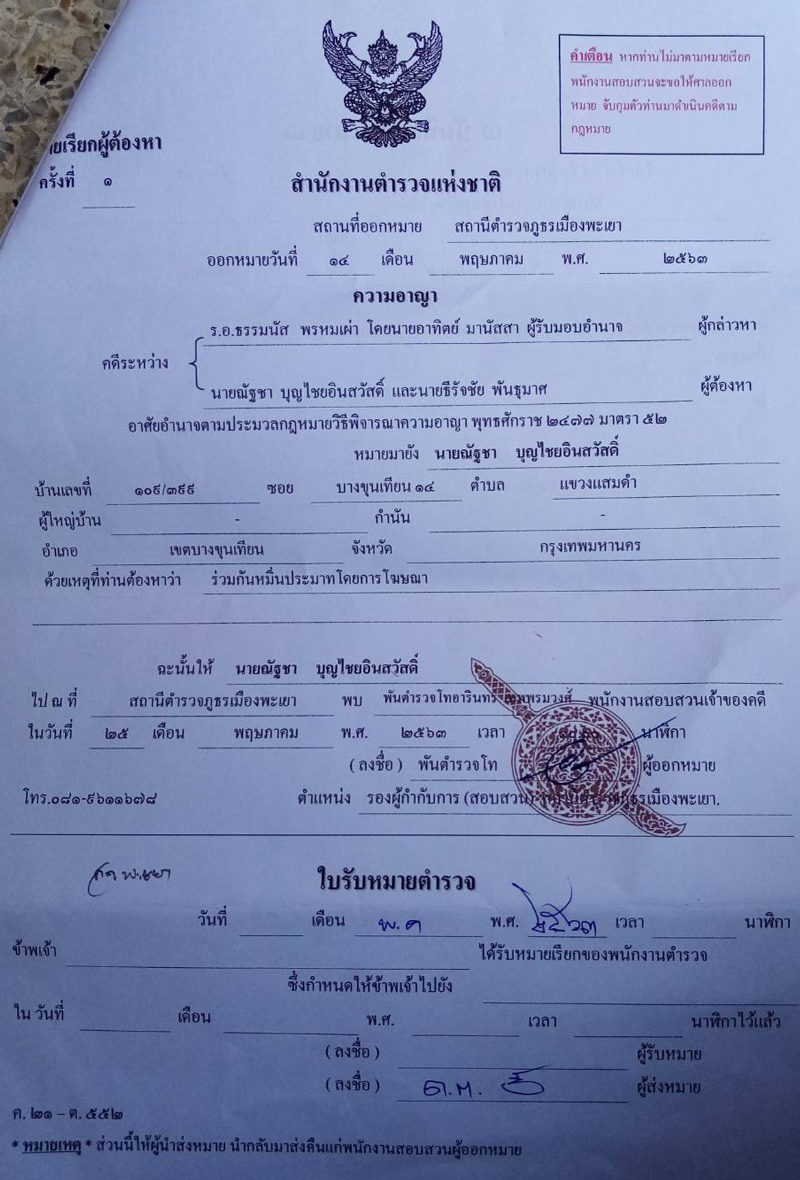 คำเตือน หากท่านไม่มาตามหมายเรียก
พนักงานสอบสวนจะขอให้ศาลออก
หมาย จับกุมตัวท่านมาดำเนินคดีตาม
กฎหมาย
ยเรียกผู้ต้องหา
ครั้งที่ ๑
สำนักงานตำรวจแห่งชาติ
สถานที่ออกหมาย สถานีตำรวจภูธรเมืองพะเยา
ออกหมายวันที่ ๑๔ เดือน พฤษภาคม พ.ศ. ๒๕๖๓
ความอาญา
ร.อ.ธรรมนัส พรหมเผ่า โดยนายอาทิตย์ มานัสสา ผู้รับมอบอำนาจ ผู้กล่าวหา
คดีระหว่าง
นายณัฐชา บุญไชยอินสวัสดิ์ และนายธีรัจชัย พันธุมาศ ผู้ต้องหา
อาศัยอำนาจตามประมวลกฎหมายวิธีพิจารณาความอาญา พุทธศักราช ๒๔๗๗ มาตรา ๕๒
หมายมายัง นายณัฐชา บุญไชยอินสวัสดิ์
บ้านเลขที่ ๑๐๙/๓๙๙ ซอย บางขุนเทียน ๑๔ ตำบล แขวงแสมดำ
ผู้ใหญ่บ้าน - กำนัน -
อำเภอ เขตบางขุนเทียน จังหวัด กรุงเทพมหานคร
ด้วยเหตุที่ท่านต้องหาว่า ร่วมกันหมิ่นประมาทโดยการโฆษณา
ฉะนั้นให้ นายณัฐชา บุญไชยอินสวัสดิ์
ไป ณ ที่ สถานีตำรวจภูธรเมืองพะเยา พบ พันตำรวจโทอารินทร์ พนักงานสอบสวนเจ้าของคดี
ในวันที่ ๒๕ เดือน พฤษภาคม พ.ศ. ๒๕๖๓ เวลา นาฬิกา
( ลงชื่อ ) พันตำรวจโท ผู้ออกหมาย
โทร.๐๘๑-๙๖๑๑๖๗๘ ตำแหน่ง รองผู้กำกับการ (สอบสวน) เมืองพะเยา.
ใบรับหมายตำรวจ
วันที่ เดือน พ.ค พ.ศ. ๒๕๖๓ เวลา นาฬิกา
ข้าพเจ้า ได้รับหมายเรียกของพนักงานตำรวจ
ซึ่งกำหนดให้ข้าพเจ้าไปยัง
ใน วันที่ เดือน พ.ศ. เวลา นาฬิกาไว้แล้ว
( ลงชื่อ ) ผู้รับหมาย
( ลงชื่อ ) ด.ต. ผู้ส่งหมาย
ค. ๒๑ – ต. ๕๕๒
* หมายเหตุ * ส่วนนี้ให้ผู้นำส่งหมาย นำกลับมาส่งคืนแก่พนักงานสอบสวนผู้ออกหมาย